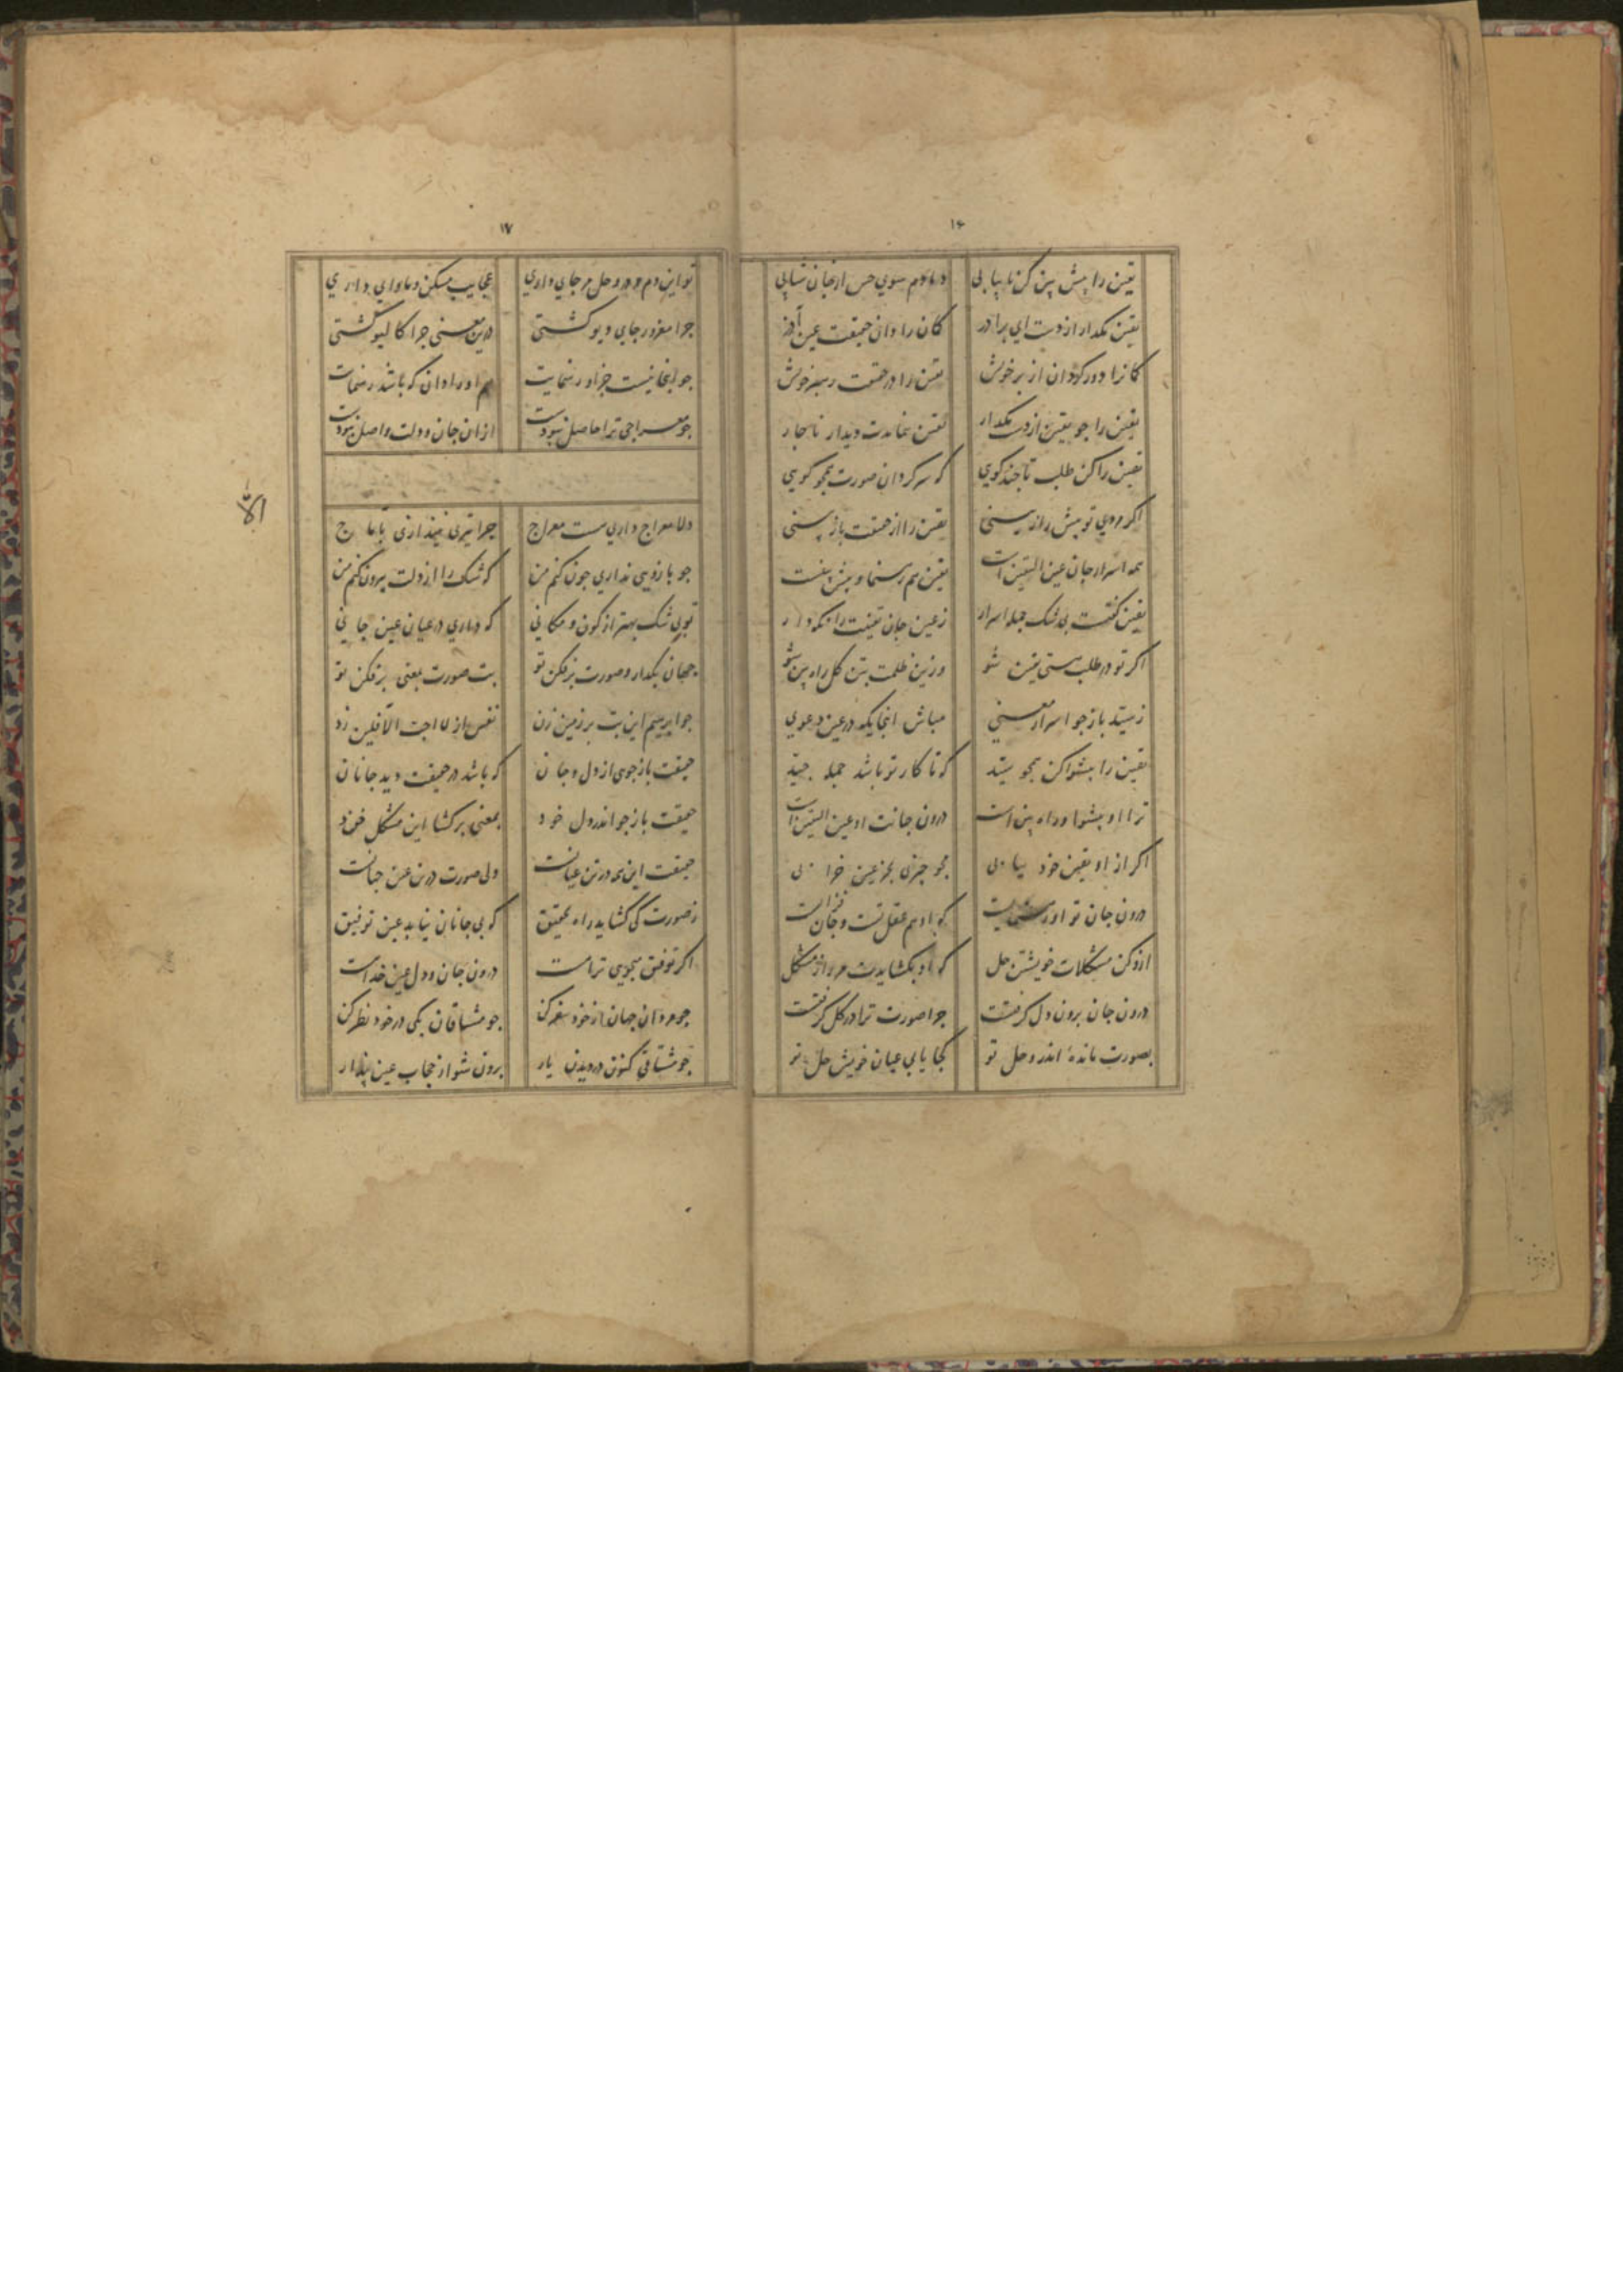 ۱۶
یقین را پیش بین کن تا بیابی دمادم سوی حس از جان شتابی
یقین مگذار از دست ای برادر گمان را دان حقیقت عین آذر
گمان را دور گردان از بر خویش یقین را در حقیقت رهبر خویش
یقین را جو یقین از دست مگذار یقین بنماید دیدار ناجار
یقین را کن طلب تا جند کویی که سرکردان صورت همجو کویی
اکر مردی تو پیش راز بینی یقین را از حقیقت باز بینی
همه اسرار جان عین الیقین است یقین هم رهنما و پیش بینست
یقین گفتت بی شک جمله اسرار ز عین جان یقینت را نکه دار
اکر تو در طلب هستی یقین شو وزین ظلمت بتن کل راه بین شو
ز سید باز جو اسرار معنی مباش اینجایکه در عین دعوی
یقین را پیشوا کن همجو سید که تا کار تو باشد جمله جید
ترا او پیشوا و راه بین است درون جانت او عین الیقین است
اکر از او یقین خود بیابی مجو جیزی بجز عین خرابی
درون جان تو او رهنمایست که او هم عقل تست و جان فزایست
ازو کن مشکلات خویشتن حل که او بکشایدت هر راز مشکل
درون جان برون دل کرفتت جرا صورت ترا در کل کرفتت
بصورت ماندهٔ اندر وحل تو کجا یابی عیان خویش حل تو
۱۷
تو این دم در وحل مر جای داری عجایب مسکن و ماوای داری
جرا مغرور جای دیو کشتی درین معنی جرا کالیو کشتی
جو اینجا نیست جز او رهنمایت هم او را دان که باشد رهنمات
جو معراجی ترا حاصل نبودت از ان جان و دلت واصل نبودت
دلا معراج داری هست معراج جرا تیری نیندازی بآماج
جو بازویی نداری جون کنم من که شک را از دلت بیرون کنم من
تو بی شک بهتر از کون و مکانی که داری در عیان عین جانی
جهان بگذار و صورت برفکن تو بت صورت بمعنی برفکن تو
جو ابرهیم این بت بر زمین زن نفس از لا احب الآفلین زن
حقیقت باز جوی از دل و جان که باشد در حقیقت دید جانان
حقیقت باز جو اندر دل خود بمعنی برکشا این مشکل خود
حقیقت این همه در تن عیانست ولی صورت درین عین جهانست
ز صورت کی کشاید راه تحقیق که بی جانان نیابد عین توفیق
اکر توفیق میجویی تراست درون جان و دل عین خداست
جو مردان جهان از خود سفر کن جو مشتاقان یکی در خود نظر کن
جو مشتاقی کنون در دیدن یار برون شو از حجاب عین پندار
الا